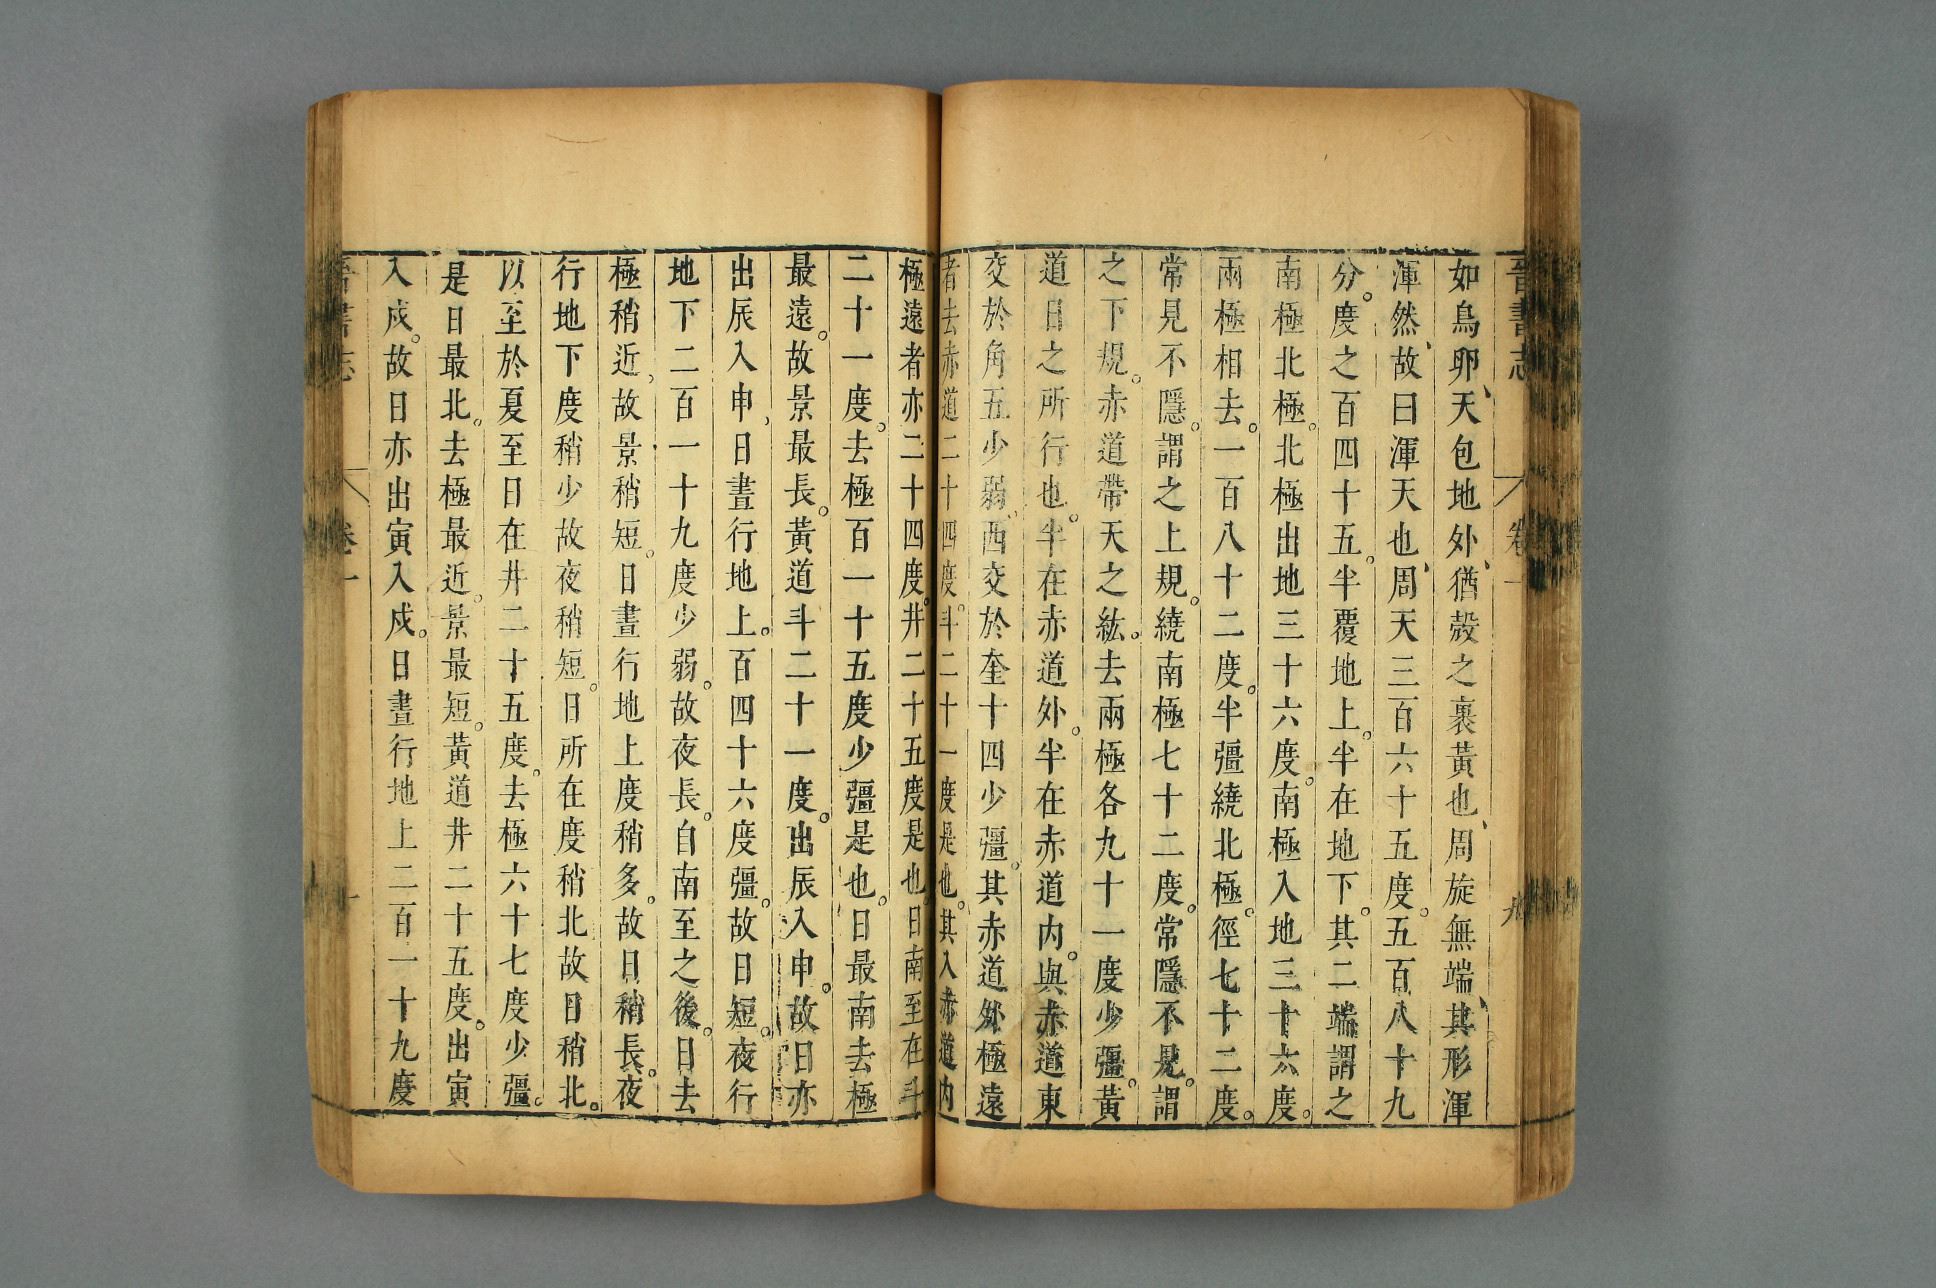 晉書志 卷一 九
如鳥卵天包地外猶殼之裹黃也周旋無端其形渾
渾然故曰渾天也周天三百六十五度五百八十九
分度之百四十五半覆地上半在地下其二端謂之
南極北極北極出地三十六度南極入地三十六度
兩極相去一百八十二度半彊繞北極徑七十二度
常見不隱謂之上規繞南極七十二度常隱不見謂
之下規赤道帶天之紘去兩極各九十一度少彊黃
道日之所行也半在赤道外半在赤道內與赤道東
交於角五少弱西交於奎十四少彊其赤道外極遠
者去赤道二十四度斗二十一度是也其入赤道內
極遠者亦二十四度井二十五度是也日南至在斗
二十一度去極百一十五度少彊是也日最南去極
最遠故景最長黃道斗二十一度出辰入申故日亦
出辰入申日晝行地上百四十六度彊故日短夜行
地下二百一十九度少弱故夜長自南至之後日去
極稍近故景稍短日晝行地上度稍多故日稍長夜
行地下度稍少故夜稍短日所在度稍北故日稍北
以至於夏至日在井二十五度去極六十七度少彊
是日最北去極最近景最短黃道井二十五度出寅
入戍故日亦出寅入戍日晝行地上二百一十九度
晉書志 卷一 十